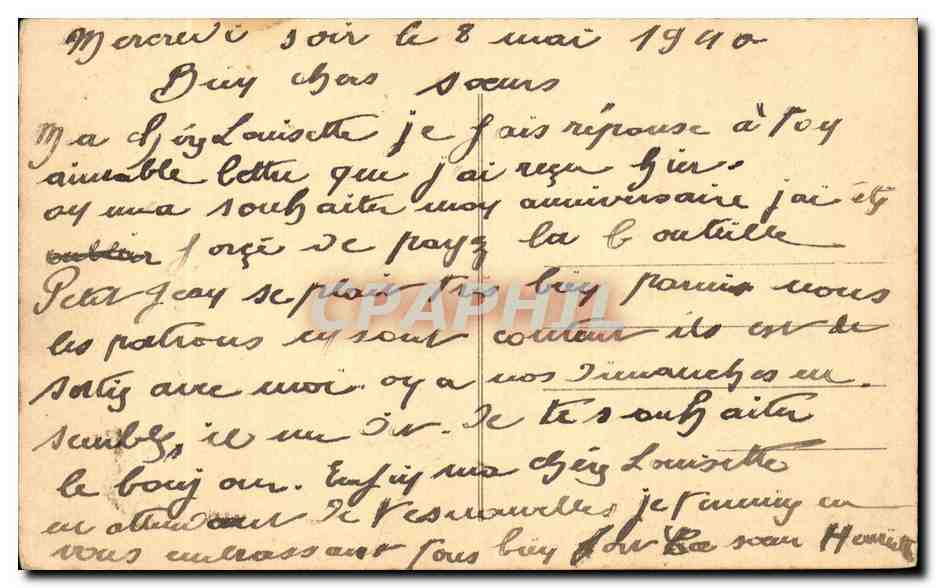 Mercredi soir le 8 mai 1940
Biey chers sœurs
Ma chérg Louisette je fais réponse à toy
aimable lettre que j'ai reçu hier.
oy ma souhaiter moy anniversaire j'ai été
oublier forçé de payé la bouteille
Petit Jeay se plait tres biey parmis nous
les patrons en sont content ils est de
sortig avec moi. oy a nos dimanches en
semble, il me dit de te souhaiter
le bonjour. Enfiy ma chérg Louisette
en attendant de tes nouvelles je terming en
vous embrassant tous biey fort La sœur Henriette
CPAPHIL